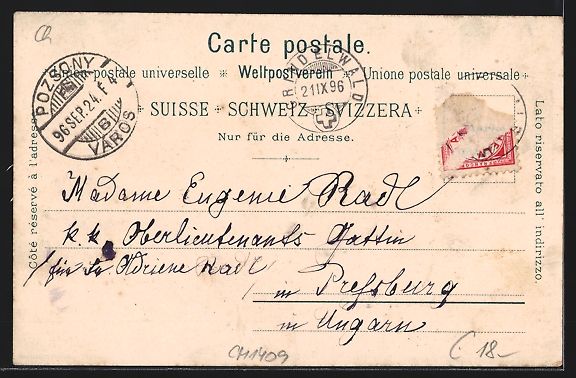 Ch
Carte postale.
Union postale universelle Weltpostverein Unione postale universale
SUISSE SCHWEIZ SVIZZERA
Nur für die Adresse.
POZSONY
96 SEP. 24. F 4
B
VÁROS
GRINDELWALD
21 IX 96
Côté réservé à l'adresse.
Lato riservato all' indirizzo.
Madame Eugenie Radl
k. k. Oberlieutenants Gattin
für Adriene Radl
in Pressburg
in Ungarn
CH1409
C 18-